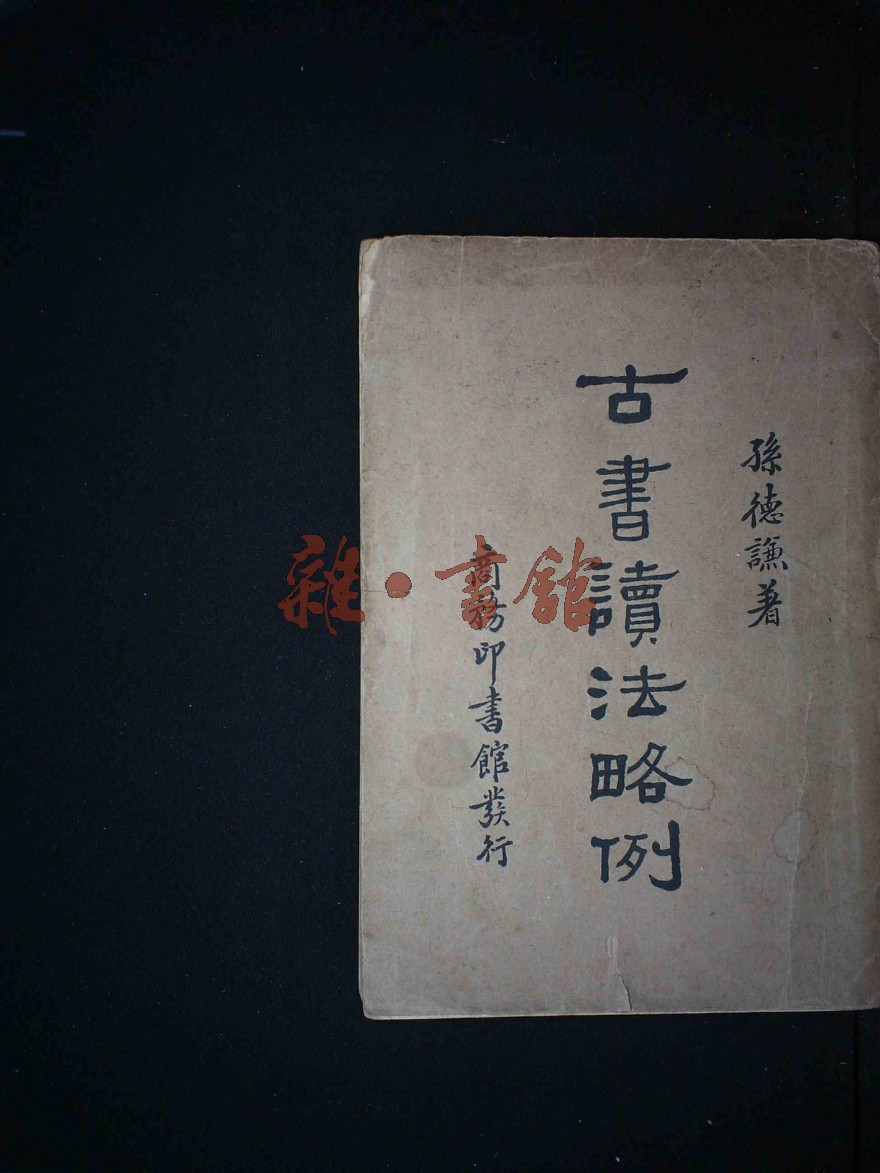 孫德謙著
古書讀法略例
商務印書館發行
雜·書館